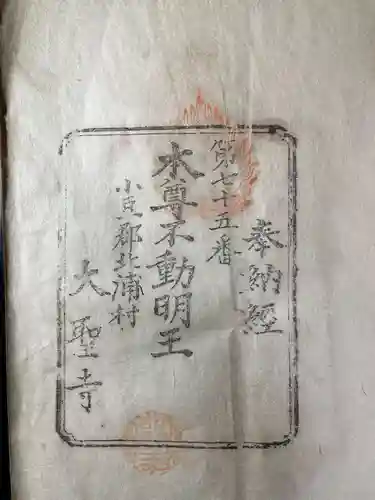 奉納経
第七十五番
本尊不動明王
小見郡北浦村
大聖寺